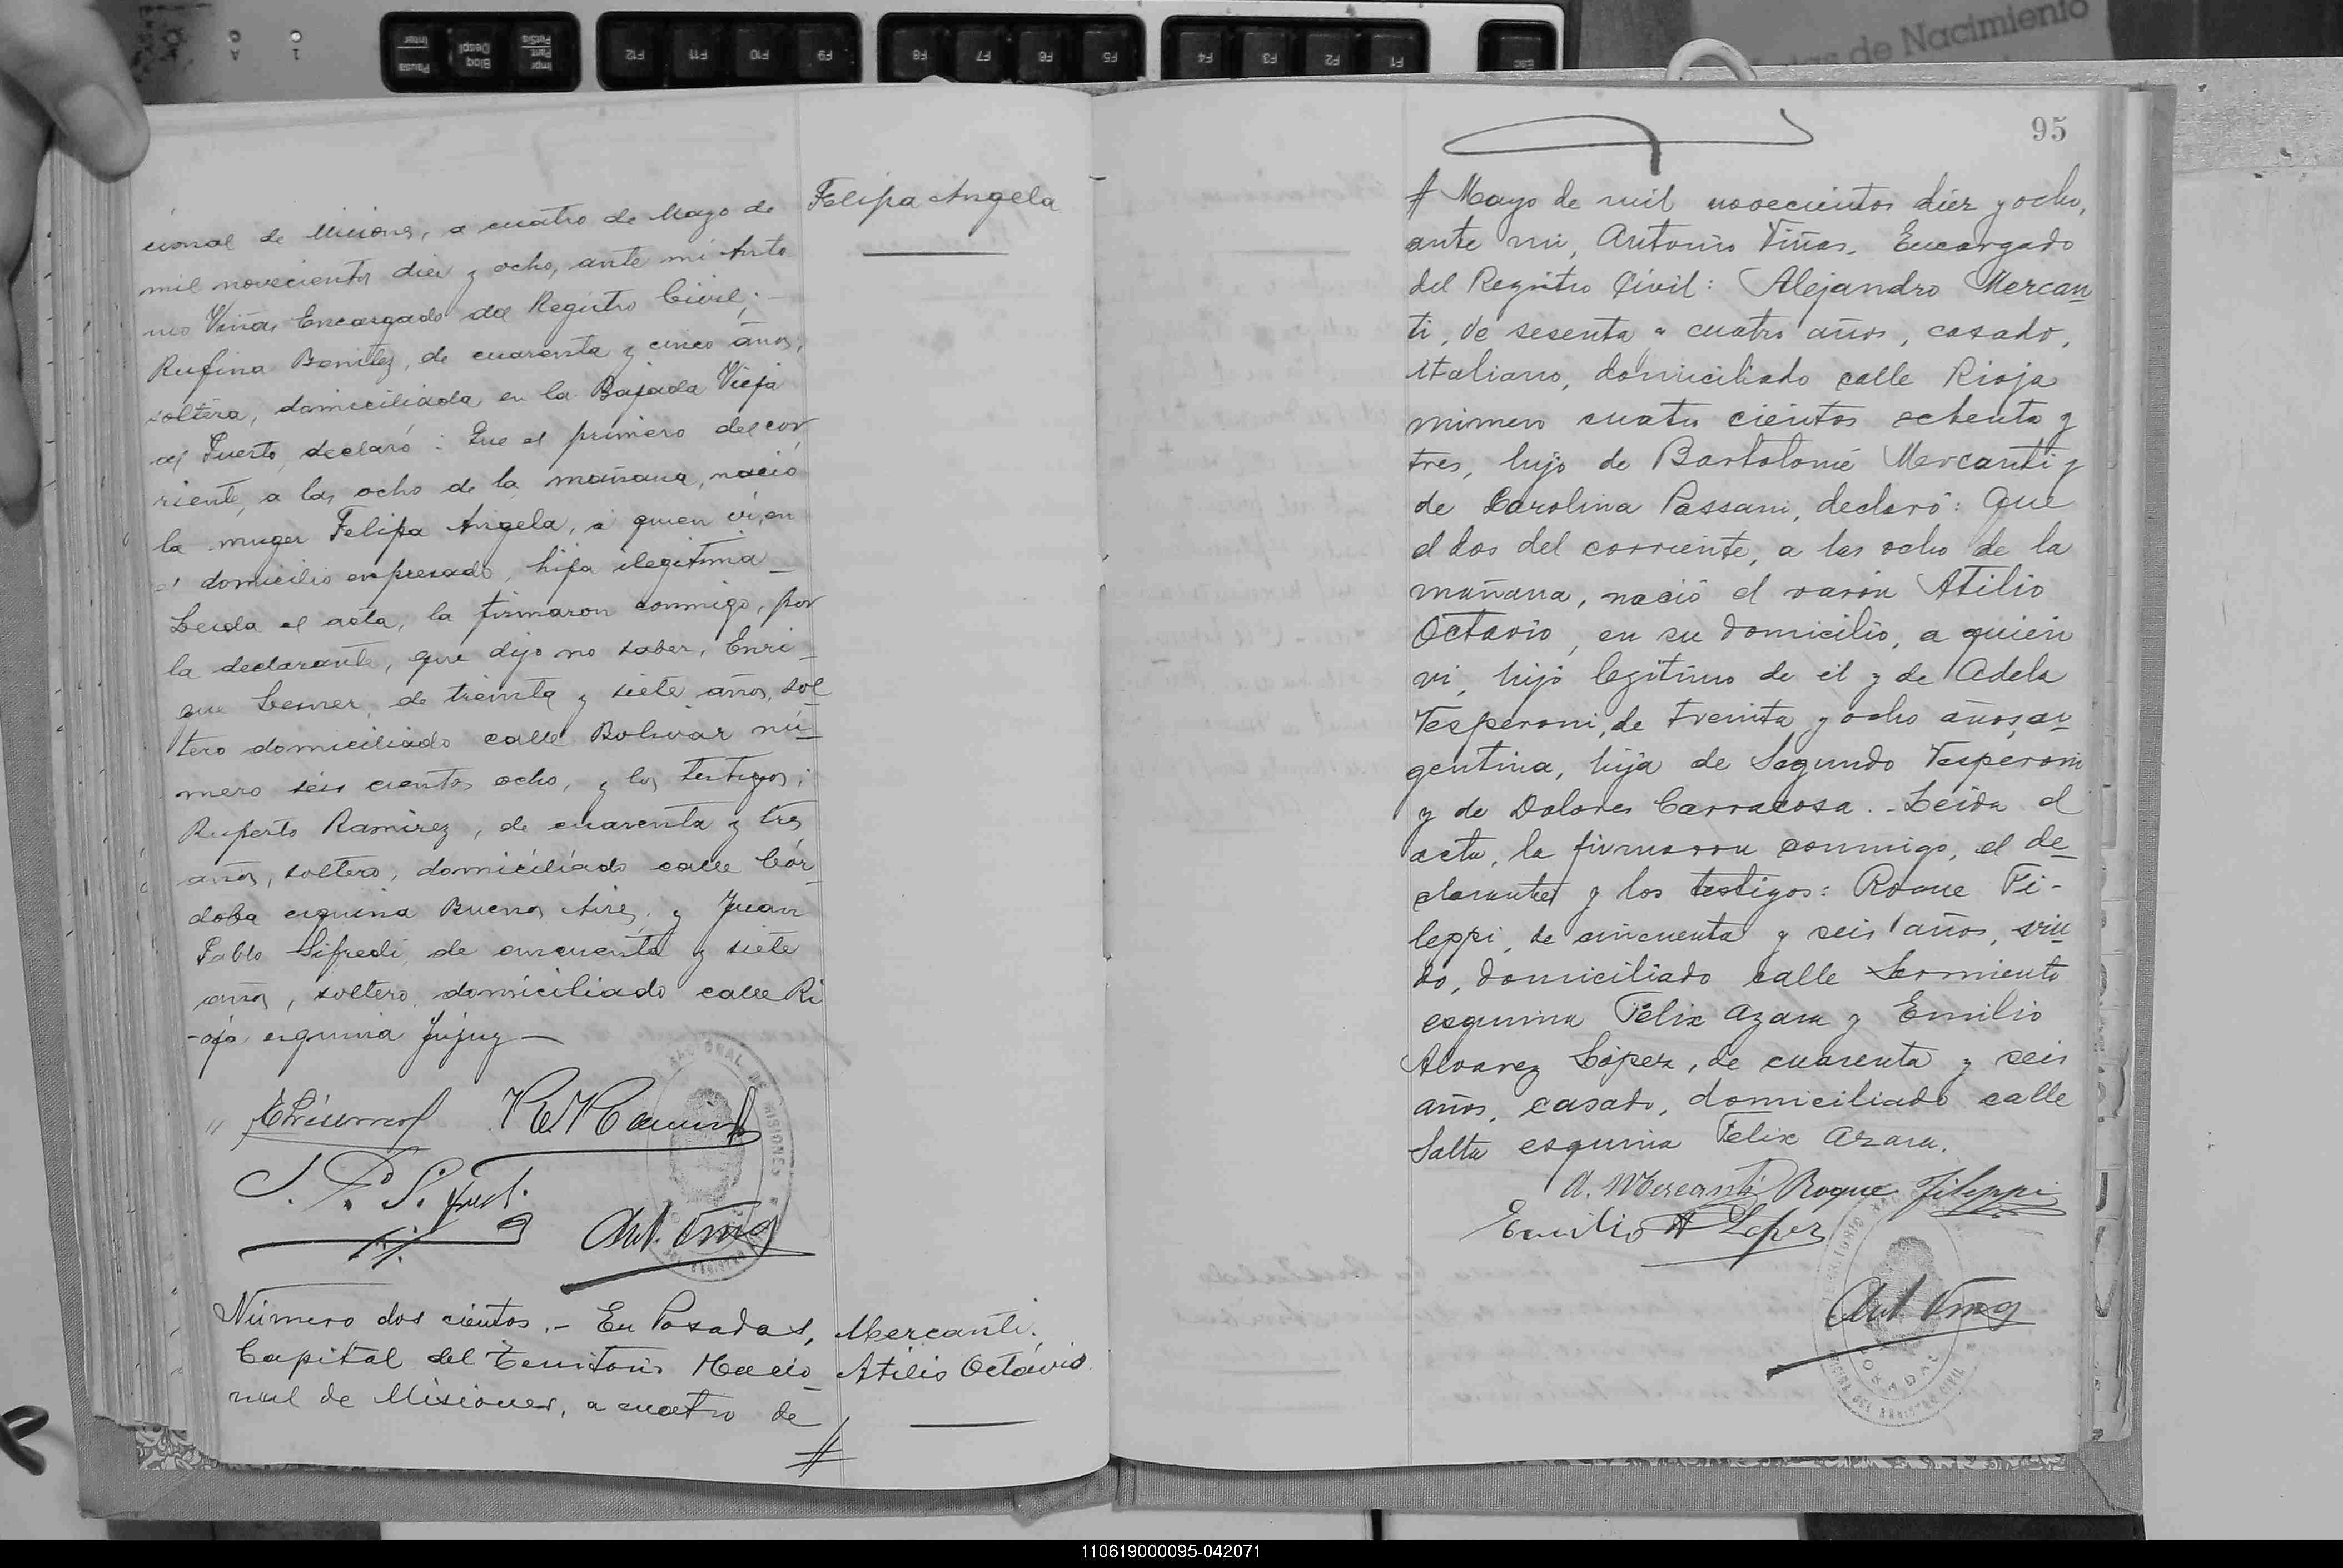 Pausa
Inter
Bloq
Despl
Impr
Pant
PetSis
F12
F11
F10
F9
F8
F7
F6
F5
F4
F3
F2
F1
Esc
de Nacimiento
cional de Misiones, a cuatro de Mayo de
mil novecientos diez y ocho, ante mi Anto
nio Viñas Encargado del Registro Civil;-
Rufina Benitez, de cuarenta y cinco años,
soltera, domiciliada en la Bajada Vieja
al Puerto, declaró: Que el primero del cor
riente, a las ocho de la mañana, nació
la muger Felipa Angela, a quien vi, en
el domicilio expresado, hija ilegitima_
Leida el acta, la firmaron conmigo, por
la declarante, que dijo no saber, Enri_
que, de treinta y siete años, sol
tero domiciliado calle Bolivar nú_
mero seis cientos ocho, y los testigos:
Ruperto Ramirez, de cuarenta y tres
años, soltero, domiciliado calle Cór_
doba esquina Buenos Aires, y Juan
Pablo Sifredi, de cincuenta y siete
años, soltero, domiciliado calle Ri
-oja esquina Jujuy—
Ant. Viñas
Felipa Angela
Número dos cientos.- En Posadas,
Capital del Territorio Nacio_
nal de Misiones, a cuatro de
#
Mercanti.
Atilio Octavio
95
# Mayo de mil novecientos diez y ocho,
ante mi, Antonio Viñas, Encargado
del Registro Civil: Alejandro Mercan
ti, de sesenta y cuatro años, casado,
italiano, domiciliado calle Rioja
número cuatro cientos ochenta y
tres, hijo de Bartolomé Mercanti y
de Carolina Passani, declaró: Que
el dos del corriente, a las ocho de la
mañana, nació el varón Atilio
Octavio, en su domicilio, a quien
vi, hijo legítimo de él y de Adela
Vesperoni, de treinta y ocho años, ar
gentina, hija de Segundo Vesperoni
y de Dolores Carracosa.- Leida el
acta, la firmaron conmigo, el de_
clarante y los testigos: Roque Fi-
leppi, de cincuenta y seis años, viu
do, domiciliado calle Sarmiento
esquina Félix Azara y Emilio
Alvarez López, de cuarenta y seis
años, casado, domiciliado calle
Salta esquina Felix Azara.
A. Mercanti Roque Fileppi
Emilio A Lopez
Ant. Viñas
110619000095-042071